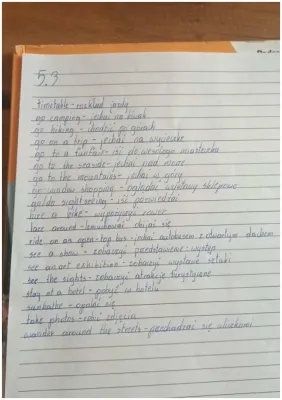 5.3
timetable - rozkład jazdy
go camping - jechać na biwak
go hiking - chodzić po górach
go on a trip - jechać na wycieczkę
go to a funfair - iść do wesołego miasteczka
go to the seaside - jechać nad morze
go to the mountains - jechać w góry
go window shopping - oglądać wystawy sklepowe
go sightseeing - iść pozwiedzać
hire a bike - wypożyczyć rower
laze around - leniuchować, obijać się
ride on an open-top bus - jechać autobusem z otwartym dachem
see a show - zobaczyć przedstawienie, występ
see an art exhibition - zobaczyć wystawę sztuki
see the sights - zobaczyć atrakcje turystyczne
stay at a hotel - pobyć w hotelu
sunbathe - opalać się
take photos - robić zdjęcia
wander around the streets - przechadzać się uliczkami